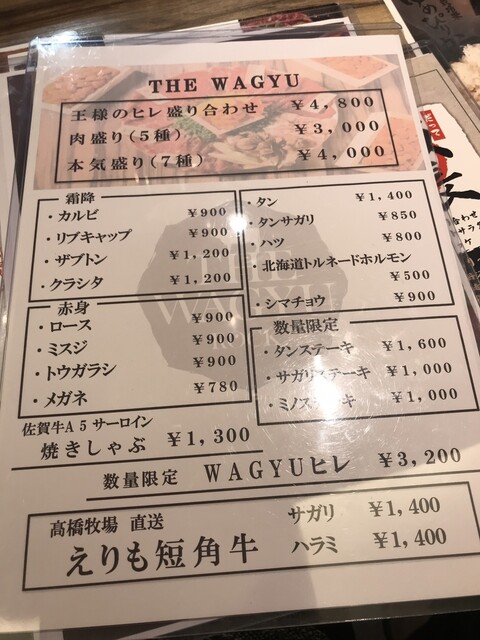 THE WAGYU
王様のヒレ盛り合わせ ¥4,800
肉盛り(5種) ¥3,000
本気盛り(7種) ¥4,000
霜降
・カルビ ¥900
・リブキャップ ¥900
・ザブトン ¥1,200
・クラシタ ¥1,200
赤身
・ロース ¥900
・ミスジ ¥900
・トウガラシ ¥900
・メガネ ¥780
・タン ¥1,400
・タンサガリ ¥850
・ハツ ¥800
・北海道トルネードホルモン
¥500
・シマチョウ ¥900
数量限定
・タンステーキ ¥1,600
・サガリステーキ ¥1,000
・ミノステーキ ¥1,000
佐賀牛A5サーロイン
焼きしゃぶ ¥1,300
数量限定 WAGYUヒレ ¥3,200
髙橋牧場 直送
えりも短角牛
サガリ ¥1,400
ハラミ ¥1,400